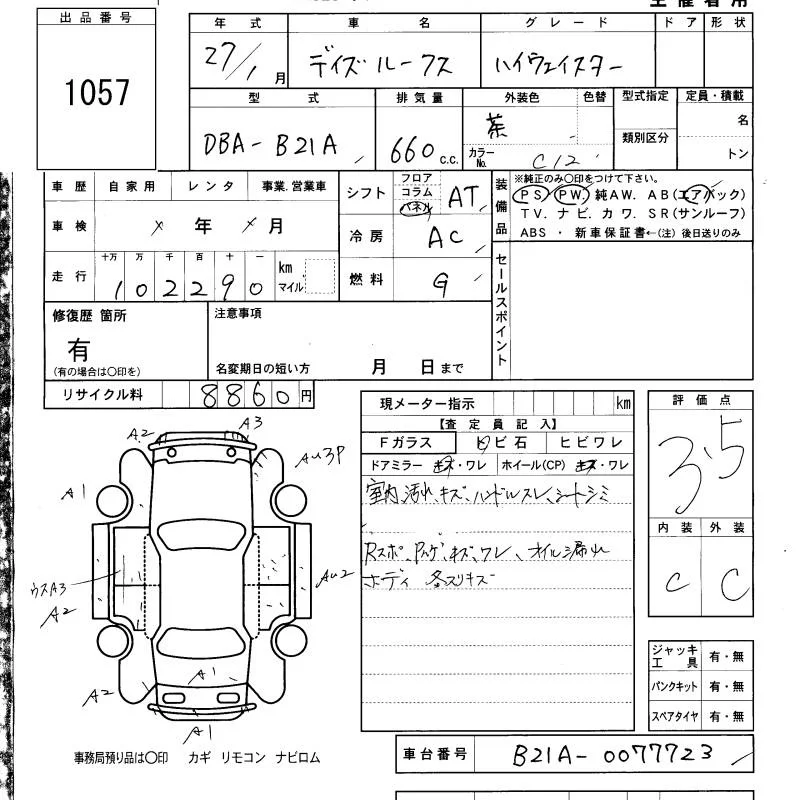 出品番号
1057
年式 車名 グレード ドア 形状
27/1月 デイズルークス ハイウェイスター
型式 排気量 外装色 色替 型式指定 定員・積載
DBA-B21A 660 c.c. 茶 カラーNo. C12 類別区分 名 トン
車歴 自家用 レンタ 事業.営業車
車検 × 年 × 月
走行 十万 万 千 百 十 一
102290 km マイル
シフト フロア コラム パネル AT
冷房 AC
燃料 G
装備品 ※純正のみ○印をつけて下さい。
PS PW. 純AW. AB(エアバック)
TV. ナビ. カワ. SR(サンルーフ)
ABS ・ 新車保証書←(注) 後日送りのみ
セールスポイント
修復歴 箇所 注意事項
有
(有の場合は○印を) 名変期日の短い方 月 日まで
リサイクル料 8860円
現メーター指示 km
【査定員記入】
Fガラス トビ石 ヒビワレ
ドアミラー キズ・ワレ ホイール(CP) キズ・ワレ
室内、汚れ、キズ、ハンドルスレ、シートシミ
Rスポ、Rゲ、キズ、ワレ、オイル漏れ
ボディ 各スリキズ
評価点
3.5
内装 外装
C C
ジャッキ工具 有・無
パンクキット 有・無
スペアタイヤ 有・無
A2 A3
AU3P
A1
ウスA3
A2
AU2
A2
A1
A1
事務局預り品は○印 カギ リモコン ナビロム
車台番号 B21A-0077723